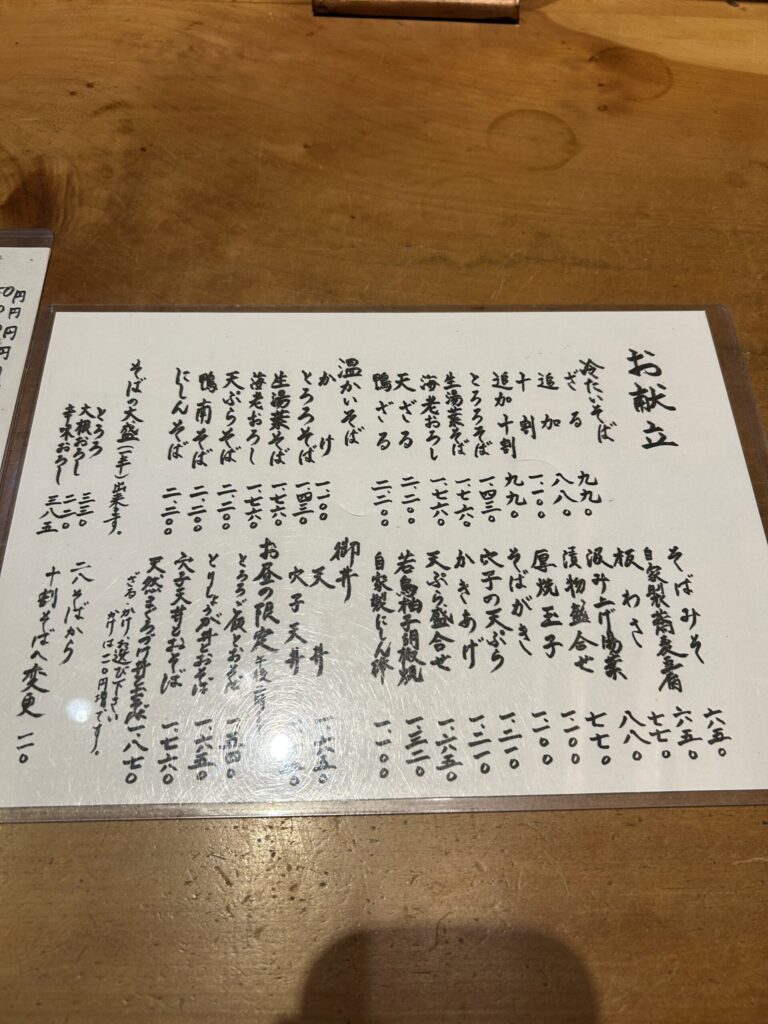 お献立
冷たいそば
ざる 九九〇
追加 八八〇
十割 一.一〇〇
追加十割 九九〇
とろろそば 一.四三〇
生湯葉そば 一.七六〇
海老おろし 一.七六〇
天ざる 二.二〇〇
鴨ざる 二.二〇〇
温かいそば
かけ 一.一〇〇
とろろそば 一.四三〇
生湯葉そば 一.七六〇
海老おろし 一.七六〇
天ぷらそば 二.二〇〇
鴨南そば 二.二〇〇
にしんそば 二.二〇〇
そばの大盛 出来ます。
とろろ 三三〇
大根おろし 二二〇
辛味おろし 三八五
そばみそ 六五〇
自家製蕎麦豆腐 六五〇
板わさ 七七〇
汲み上げ湯葉 八八〇
漬物盛合せ 七七〇
厚焼玉子 一.一〇〇
そばがき 一.一〇〇
穴子の天ぷら 一.二一〇
かきあげ 一.二一〇
天ぷら盛合せ 一.六五〇
若鳥柚子胡椒焼 一.三二〇
自家製にしん棒 一.一〇〇
御丼
天丼 一.六五〇
穴子天丼
お昼の限定 午後二時
とろろご飯とおそば 一.五四〇
とりしょうが丼とおそば 一.六五〇
穴子天丼とおそば 一.七六〇
天然まぐろづけ丼とおそば 一.八七〇
ざる・かけ、お選び下さい
かけは 二〇円増です。
二八そばから
十割そばへ変更 一一〇
円
円
円
円